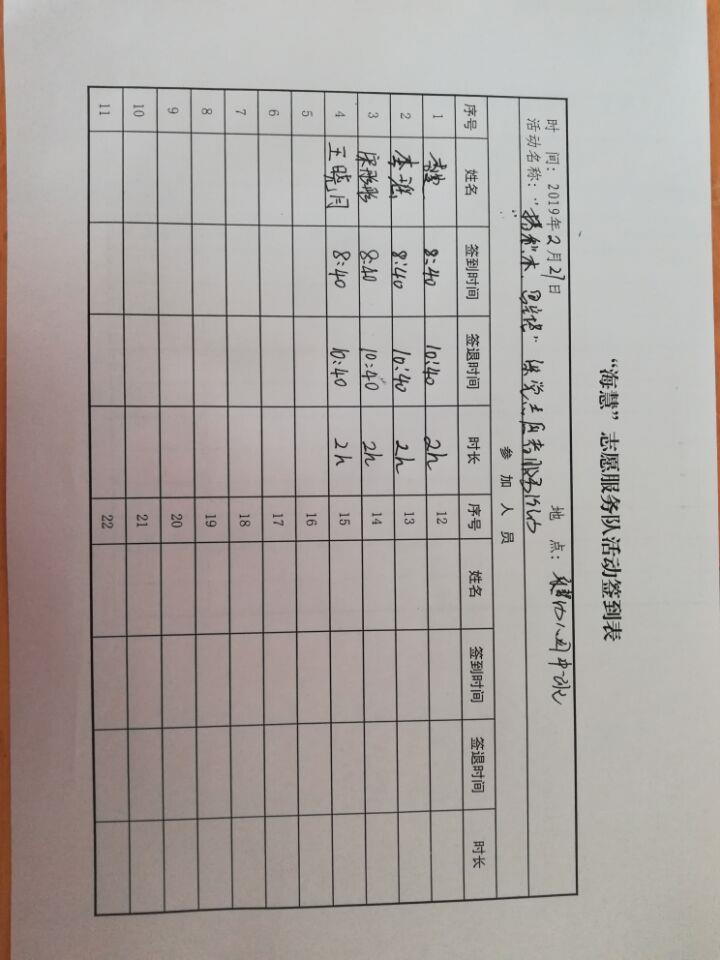 “海慧”志愿服务队活动签到表
时 间：2019年2月27日 地 点：
活动名称：
参 加 人 员
序号 姓名 签到时间 签退时间 时长 序号 姓名 签到时间 签退时间 时长
1 8:40 10:40 2h 12
2 李 8:40 10:40 2h 13
3 8:40 10:40 2h 14
4 王晓闫 8:40 10:40 2h 15
5 16
6 17
7 18
8 19
9 20
10 21
11 22